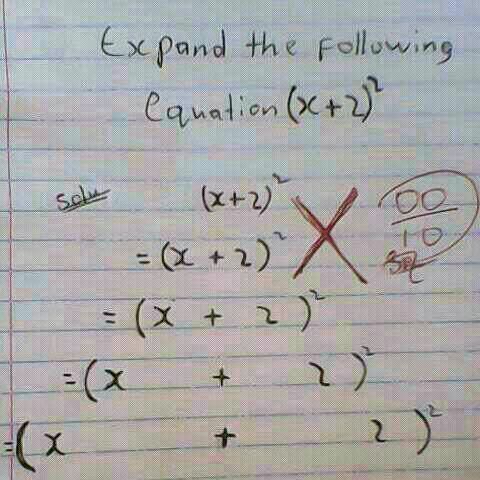 Expand the following
equation (x+2)²
Solu
(x+2)²
00
10
= (x + 2)²
= (x + 2)²
= (x + 2)²
= (x + 2)²